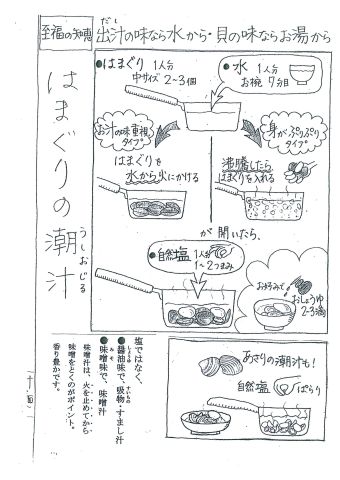 至福の知恵
出汁の味なら水から・貝の味ならお湯から
だし
はまぐりの潮汁
うしおじる
●はまぐり 1人分
中サイズ 2~3個
●水 1人分
お椀 7分目
お汁の味重視
タイプ
はまぐりを
水から火にかける
身がぷりぷり
タイプ
沸騰したら
はまぐりを入れる
が開いたら、
●自然塩 1人分
1~2つまみ
お好みで
おしょうゆ
2~3滴
塩ではなく、
●醤油味で、吸物・すまし汁
しょうゆ
すいもの
●味噌味で、味噌汁
みそ
味噌汁は、火を止めてから
味噌をとくのがポイント。
香り豊かです。
あさりの潮汁も!
自然塩
ぱらり